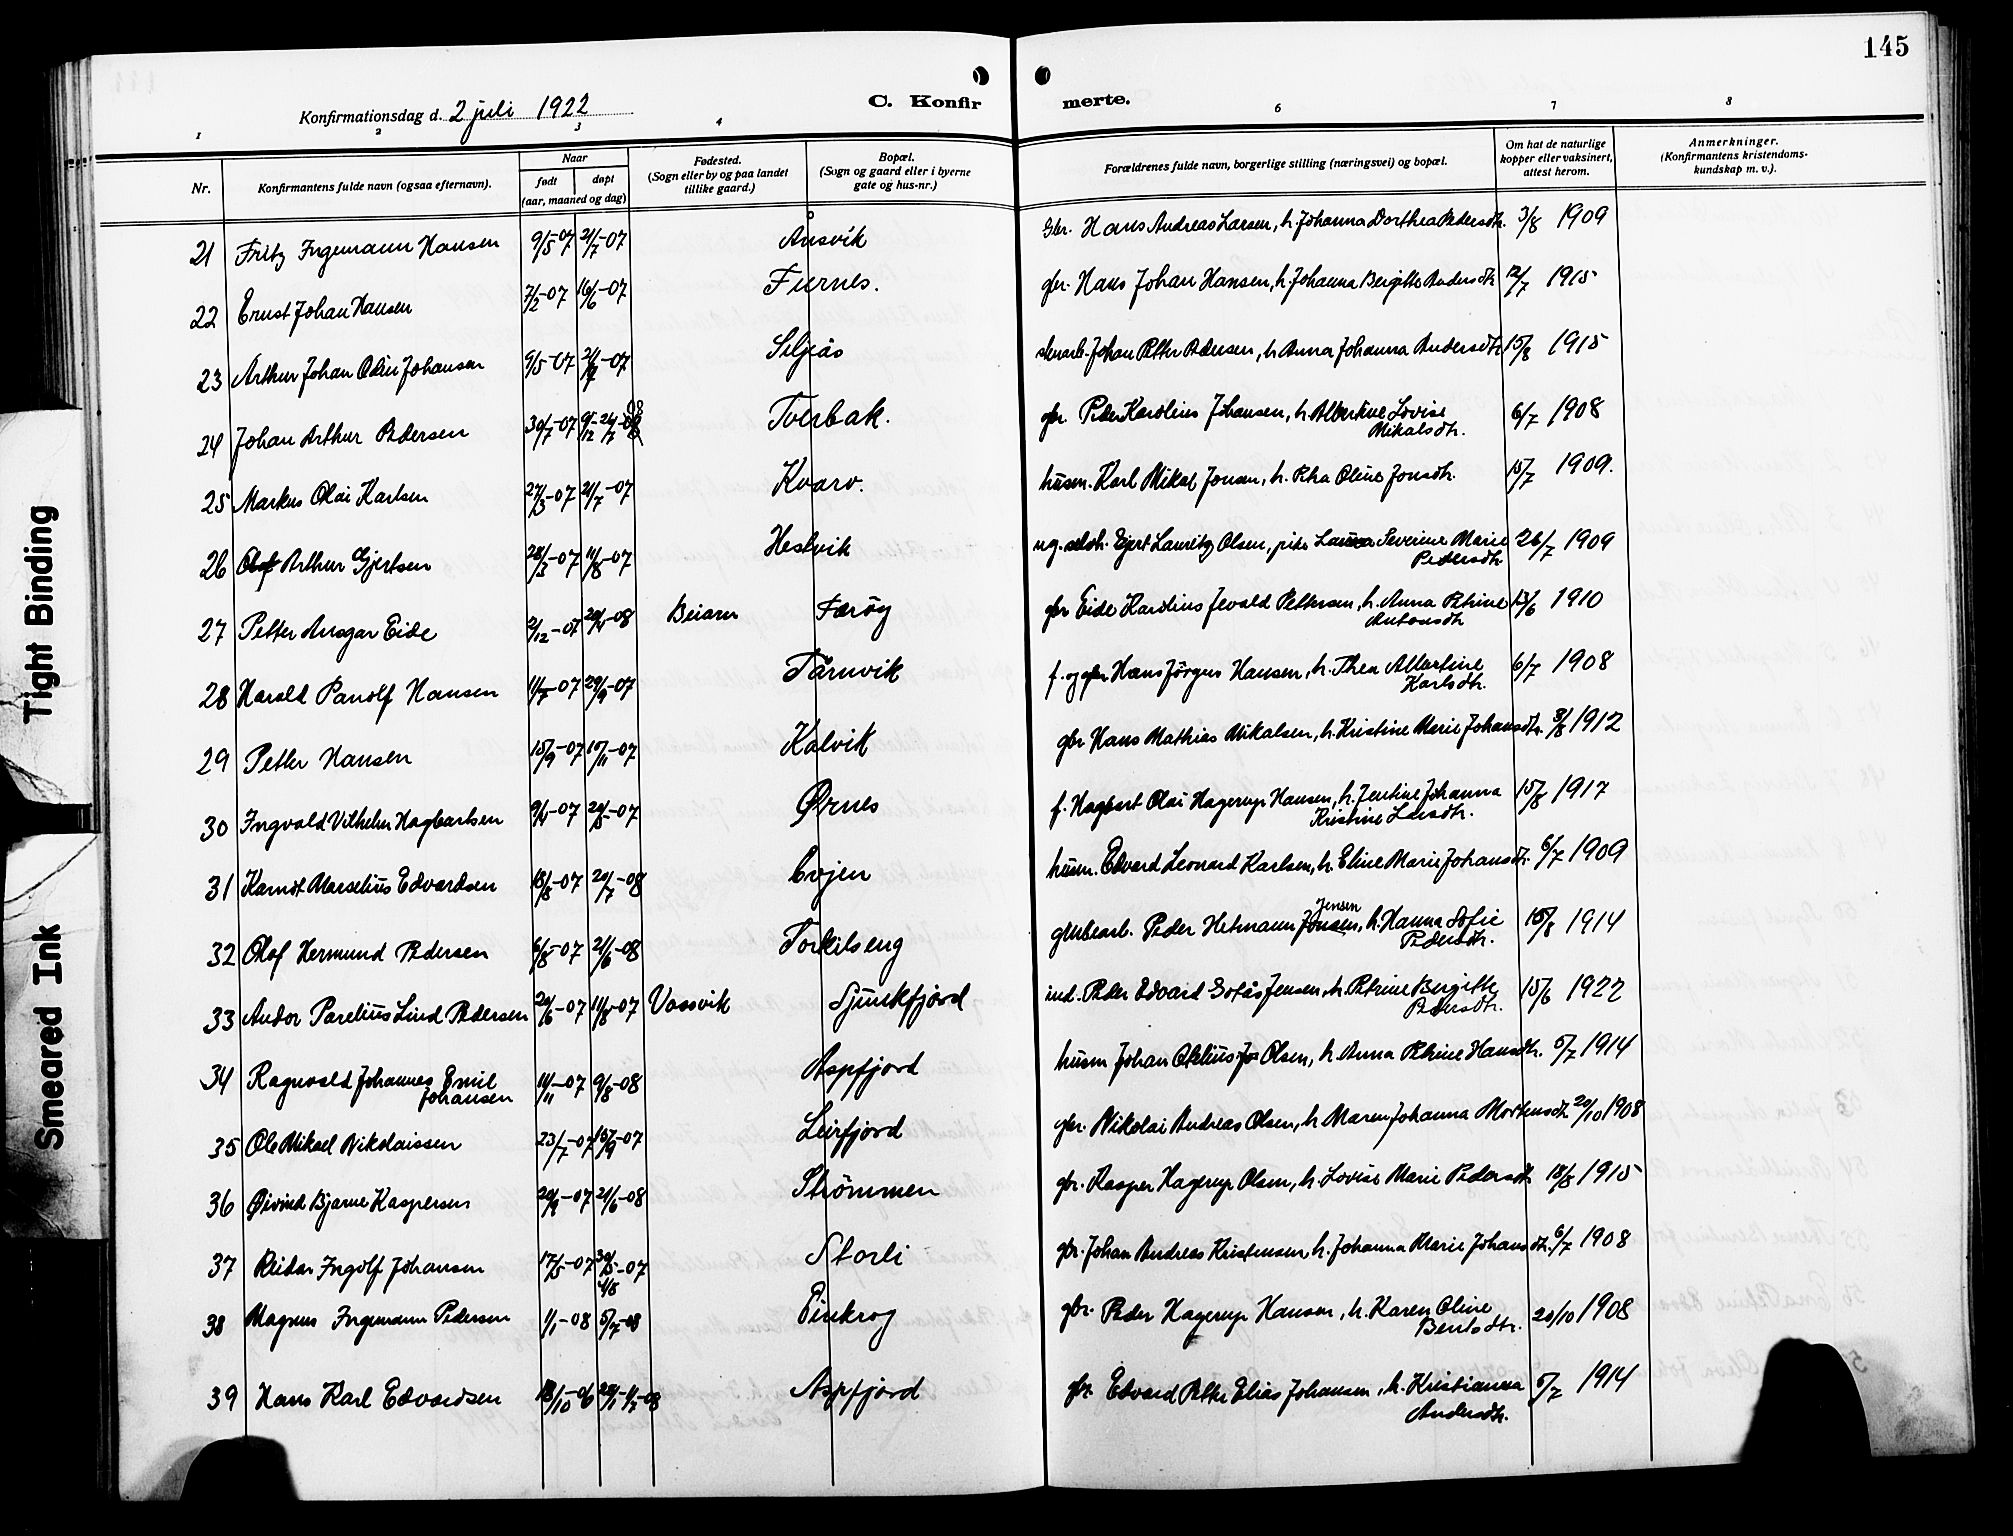 145
C. Konfirmerte.
Konfirmationsdag d. 2 juli 1922
1 2 3 4 6 7 8
Nr.
Konfirmantens fulde navn (ogsaa efternavn).
Naar
født døpt
(aar, maaned og dag)
Fødested.
(Sogn eller by og paa landet
tillike gaard.)
Bopæl.
(Sogn og gaard eller i byerne
gate og hus-nr.)
Forældrenes fulde navn, borgerlige stilling (næringsvei) og bopæl.
Om hat de naturlige
kopper eller vaksinert,
attest herom.
Anmerkninger.
(Konfirmantens kristendoms-
kundskap m. v.).
21 Fritz Ingemann Hansen 9/5-07 21/7-07 Åusvik Gbr. Hans Andreas Larsen, h. Johanna Dorthea Pedersdtr. 3/8 1909
22 Ernst Johan Hansen 7/2-07 16/6-07 Furnes. gbr. Hans Johan Hansen, h. Johanna Bergitte Andersdtr 12/7 1915
23 Arthur Johan Odin Johansen 9/5-07 21/7-07 Seljeås Johan Petter Pedersen, h. Anna Johanna Andersdtr 15/8 1915
24 Johan Arthur Pedersen 30/7-07 Tverbak. gbr. Peder Karolius Johansen, h. Albertine Lovise
Mikalsdtr. 6/7 1908
25 Markus Olai Karlsen 27/3-07 21/7-07 Kvarv. husm. Karl Mikal Jonsen, h. Petra Oline Jonsdtr. 15/7 1909.
26 Olaf Arthur Gjertsen 28/3-07 11/8-07 Hestvik Gjert Lauritz Olsen, pike Severine Marie
Pedersdtr 26/7 1909
27 Petter Ansgar Eide 2/12-07 Beiarn Færöy gbr Eide Karolius Jevald Pettersen, h. Anna Petrine
Antonsdtr 1910
28 Harald Panolf Hansen 11/7-07 29/9-07 Tårnvik f. og gbr Hans Jörgen Hansen, h. Thea Albertine
Karlsdtr. 6/7 1908
29 Petter Hansen 15/9-07 10/11-07 Kalvik gbr Hans Mathias Mikalsen, h. Kristine Marie Johansdtr. 3/8 1912
30 Ingvald Vilhelm Hagbartsen Ørnes f. Hagbart Olai Hagerup Hansen, h. Jentine Johanna
Kristine Larsdtr. 15/8 1917
31 Karnot Marselius Edvardsen 20/7-08 Evjen husm. Edvard Leonard Karlsen, h. Eline Marie Johansdtr. 6/7 1909
32 Olaf Hermund Pedersen 6/8-07 21/6-08 Torkilseng Peder Hetmann Jonsen, h. Hanna Sofie
Jensen
Pedersdtr. 15/8 1914
33 Andor Parelius Lind Pedersen 11/8-07 Vassvik Sjunkfjord ind. Peder Edvard Jensen, h. Petrine Bergitte
Pedersdtr. 15/6 1922
34 Ragnvald Johannes Emil
Johansen 9/8-08 Aspfjord husm Johan Olsen, h. Anna Petrine Hansdtr. 5/7 1914
35 Ole Mikael Nikolaissen 23/7-07 15/9-07 Leirfjord gbr. Nikolai Andreas Olsen, h. Maren Johanna Mortensdtr. 20/10 1908
36 Øivind Bjarne Kaspersen 21/6-08 Strömmen gbr. Kasper Hagerup Olsen, h. Lovise Marie Pedersdtr 18/8 1915
37 Reidar Ingolf Johansen 17/5-07 Storli gbr. Johan Andreas Kristensen, h. Johanna Marie Johansdtr. 6/7 1908
38 Magnus Ingemann Pedersen 1/1-08 5/7-08 Finkrog gbr. Peder Hagerup Hansen, h. Karen Oline
Bentsdtr. 20/10 1908
39 Hans Karl Edvardsen Aspfjord gbr. Edvard Petter Elias Johansen, h. Kristianna
Andersdtr. 5/7 1914
Tight Binding
Smeared Ink